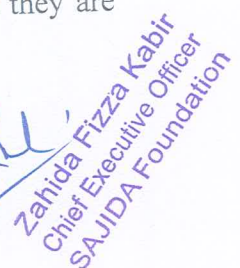 they are
Zahida Fizza Kabir
Chief Executive Officer
SAJIDA Foundation